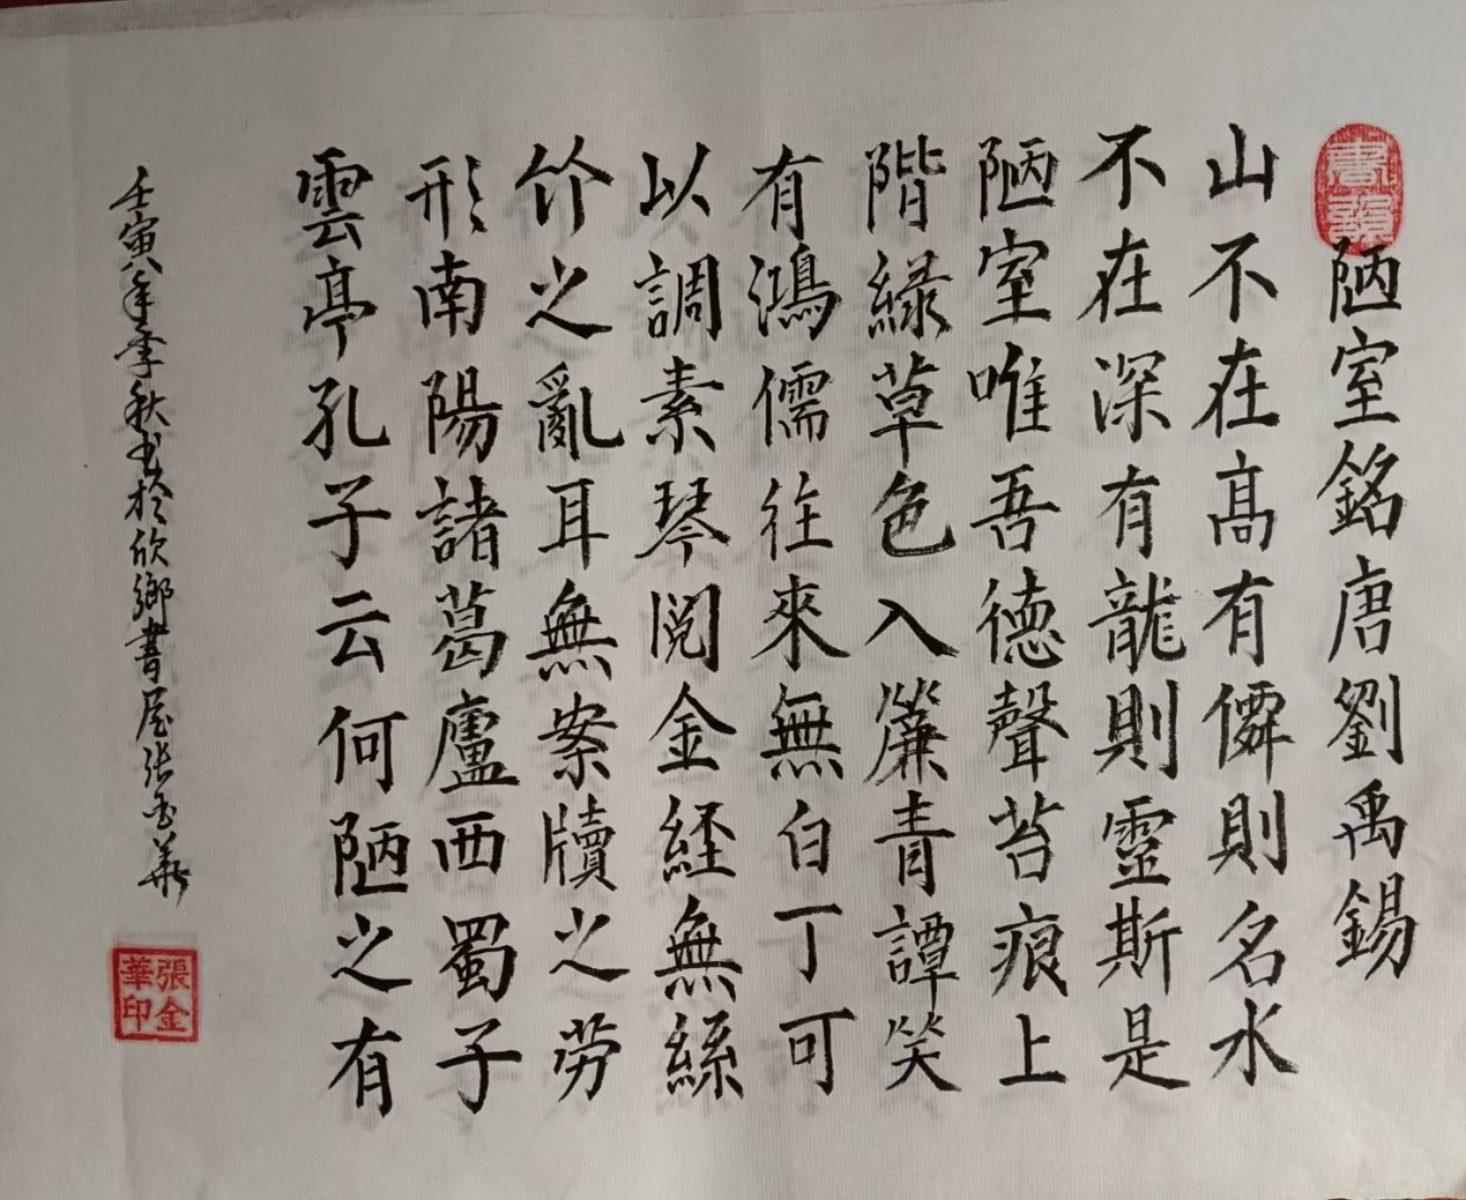 書韻
陋室銘唐劉禹錫
山不在高有僊則名水
不在深有龍則靈斯是
陋室唯吾德聲苔痕上
階緑草色入簾青譚笑
有鴻儒往來無白丁可
以調素琴閲金経無絲
竹之亂耳無案牘之労
形南陽諸葛廬西蜀子
雲亭孔子云何陋之有
壬寅年季秋书於欣鄉書屋张金華
張金
華印